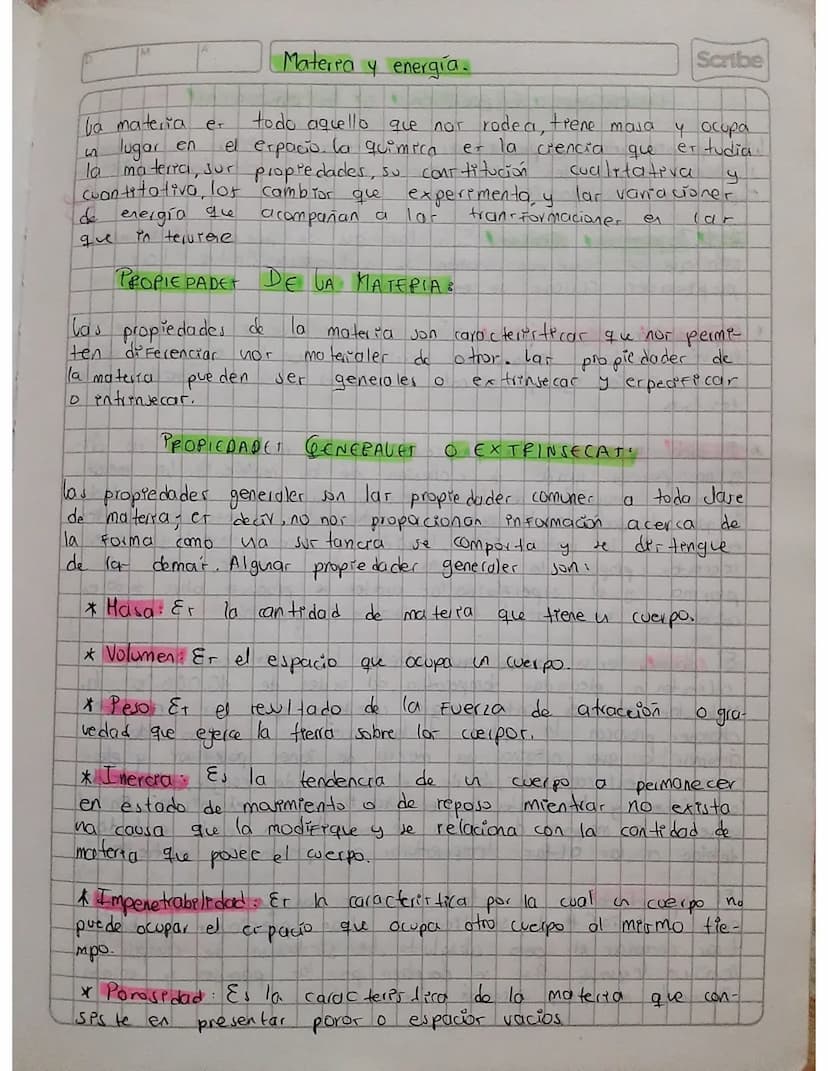 D M A
Materia y energía.
Scribe
La materia es todo aquello que nos rodea, tiene masa y ocupa
un lugar en el espacio. La química es la ciencia que estudia
la materia, sus propiedades, su constitución cualitativa y
cuantitativa, los cambios que experimenta, y las variaciones
de energía que acompañan a las transformaciones en las
que
PROPIEDADES DE LA MATERIA:
Las propiedades de la materia son características que nos permi-
ten diferenciar unos materiales de otros. Las propiedades de
la materia pueden ser generales o extrínsecas y específicas
o intrínsecas.
PROPIEDADES GENERALES O EXTRINSECAS:
las propiedades generales son las propiedades comunes a toda clase
de materia; es decir, no nos proporcionan información acerca de
la forma como una sustancia se comporta y se distingue
de las demás. Algunas propiedades generales son:
* Masa: Es la cantidad de materia que tiene un cuerpo.
* Volumen: Es el espacio que ocupa un cuerpo.
* Peso: Es el resultado de la Fuerza de atracción o gra-
vedad que ejerce la tierra sobre los cuerpos.
* Inercia: Es la tendencia de un cuerpo a permanecer
en estado de movimiento o de reposo mientras no exista
una causa que la modifique y se relaciona con la cantidad de
materia que posee el cuerpo.
* Impenetrabilidad: Es la característica por la cual un cuerpo no
puede ocupar el espacio que ocupa otro cuerpo al mismo tie-
mpo.
* Porosidad: Es la característica de la materia que con-
siste en presentar poros o espacios vacios